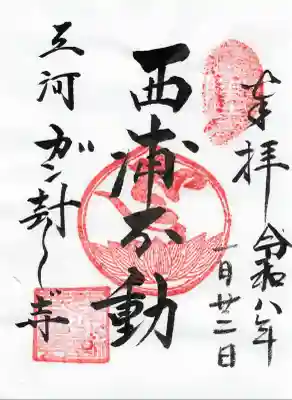 奉拝 令和八年
一月廿二日
西浦不動
三河 ガン封じ寺